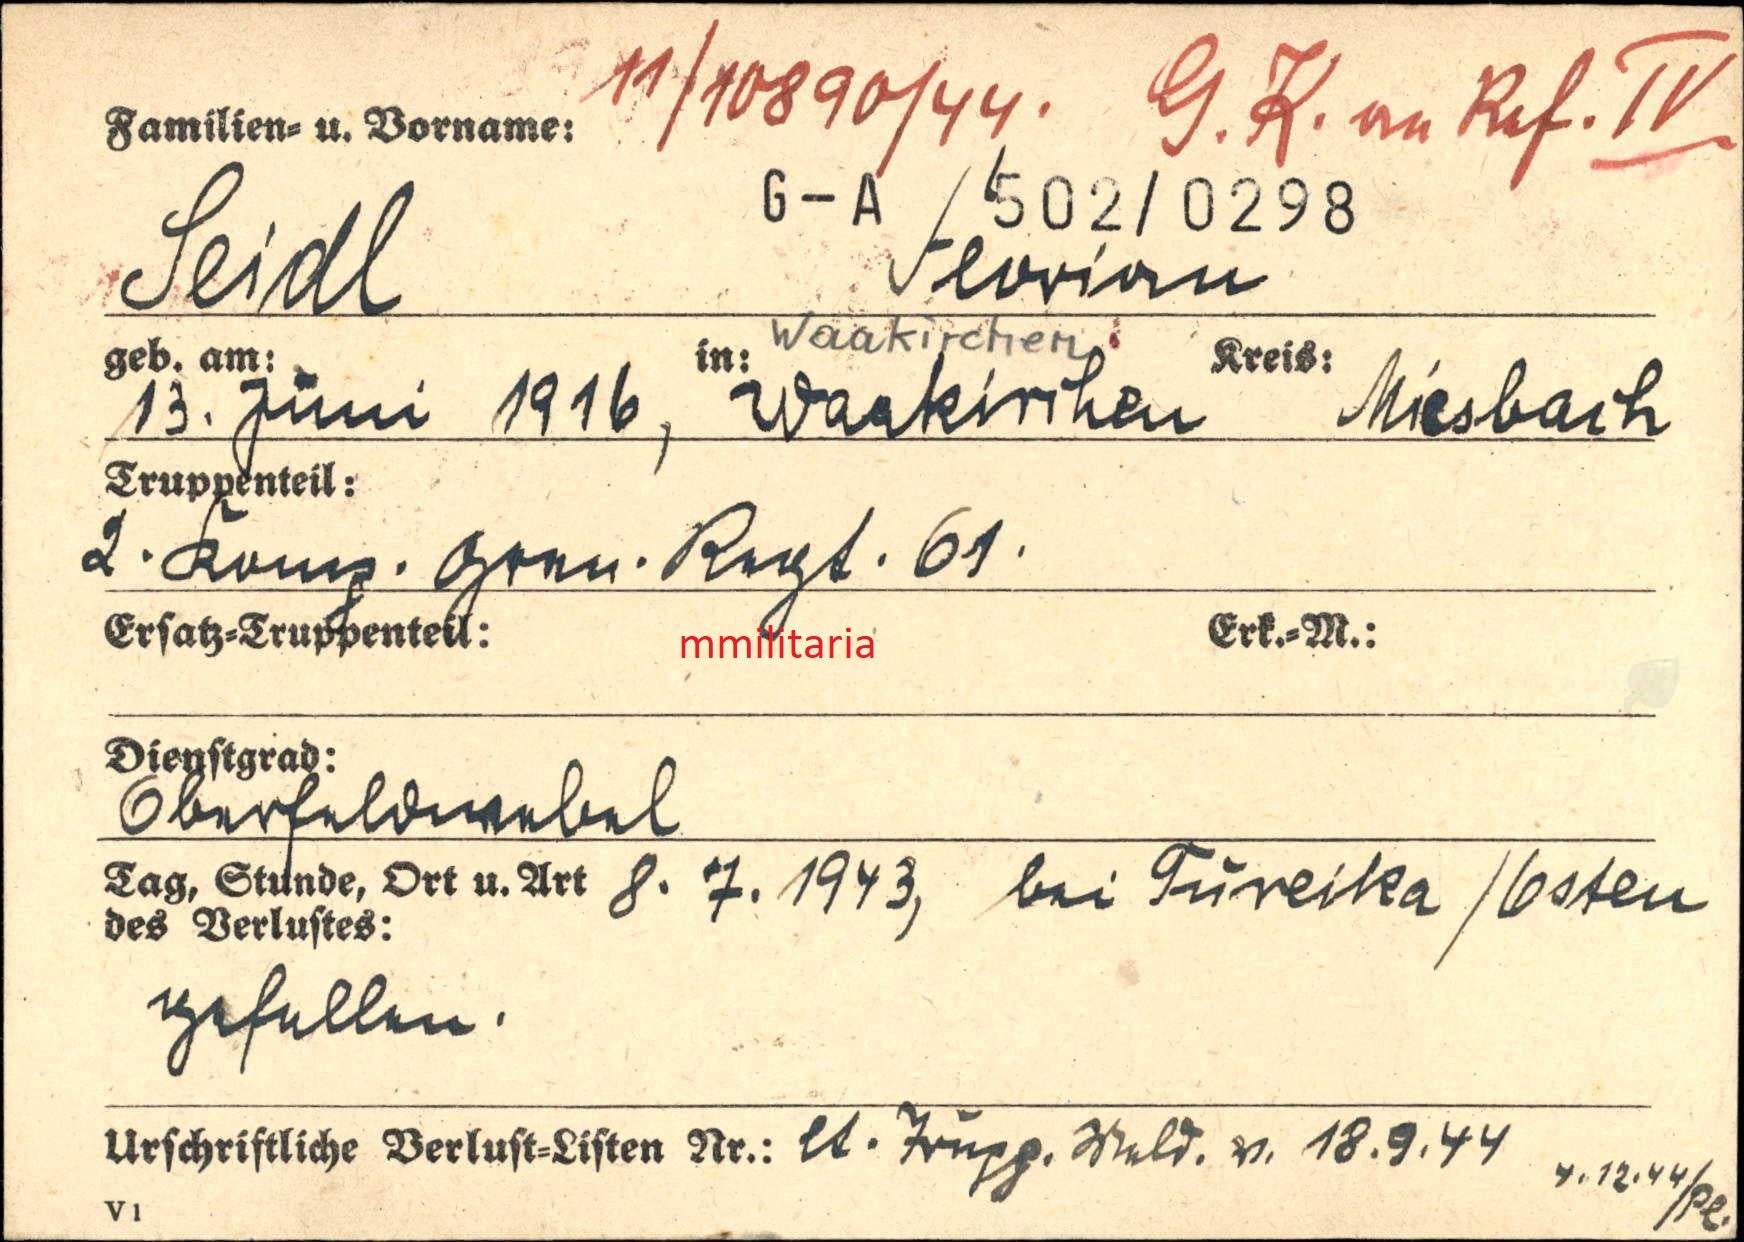 11/10890/44. G. K. an Ref. IV
Familien- u. Vorname:
G-A 502/0298
Seidl Florian
Waakirchen
geb. am: in: Kreis:
13. Juni 1916, Waakirchen Miesbach
Truppenteil:
2. Komp. Gren. Regt. 61.
Ersatz-Truppenteil: Erk.-M.:
mmilitaria
Dienstgrad:
Oberfeldwebel
Tag, Stunde, Ort u. Art 8. 7. 1943, bei Tureika /Osten
des Verlustes:
gefallen.
Urschriftliche Verlust-Listen Nr.: lt. Trupp. Meld. v. 18.9.44
4.12.44/Pl.
V 1